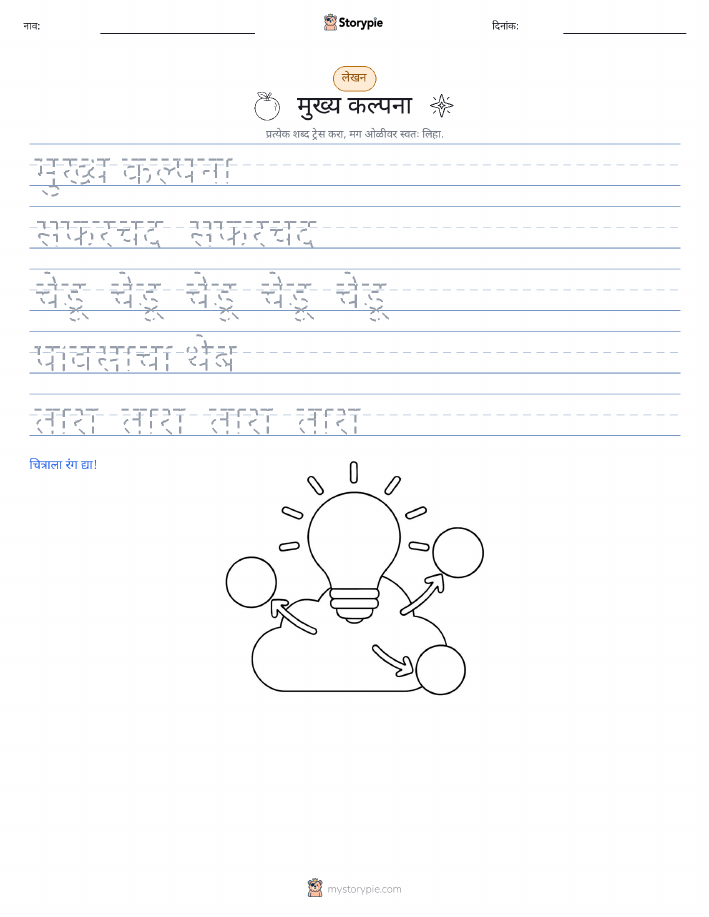 नाव:
Storypie
दिनांक:
लेखन
मुख्य कल्पना
प्रत्येक शब्द ट्रेस करा, मग ओळीवर स्वतः लिहा.
मुख्य कल्पना
सफरचंद सफरचंद
चेंडू चेंडू चेंडू चेंडू चेंडू
पावसाचा थेंब
तारा तारा तारा तारा
चित्राला रंग द्या!
mystorypie.com